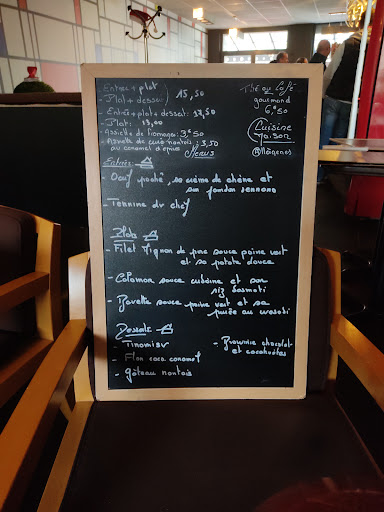 - Entrée + plat
- Plat + dessert } 15,50
- Entrée + plat + dessert : 17,50
- Plat : 13,00
- Assiette de fromages : 3,50
au caramel d'épices
Menus
Thé ou Café
gourmand
6,50
Cuisine
Maison
Entrées
- Oeuf poché, sa crème de chèvre et
son jambon serrano
- Terrine du chef
Plats
- Filet Mignon de porc sauce poivre vert
et sa patate douce
- Calamar sauce cubaine et son
riz basmati
- Bavette sauce poivre vert et sa
purée au wasabi
Desserts
- Tiramisu
- Flan coco caramel
- Gâteau nantais
- Brownie chocolat
et cacahuètes